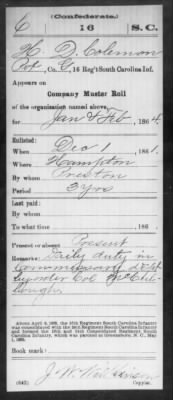 (Confederate.)
C 16 S.C.
H. D. Coleman
Pvt, Co. G, 16 Reg't South Carolina Inf.
Appears on
Company Muster Roll
of the organization named above,
for Jan & Feb, 1864.
Enlisted:
When Dec 1, 1861.
Where Hampton
By whom Preston
Period 3 yrs
Last paid:
By whom
To what time , 186 .
Present or absent Present
Remarks: Daily duty in
Commissary dept
by order Col McCul-
lough
About April 9, 1865, the 16th Regiment South Carolina Infantry
was consolidated with the 24th Regiment South Carolina Infantry
and formed the 16th and 24th Consolidated Regiment South
Carolina Infantry, which was paroled at Greensboro, N. C., May
1, 1865.
Book mark:
J. W. Wilkinson
(642) Copyist.